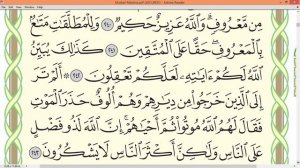 مِن مَّعْرُوفٍ ۗ وَاللَّهُ عَزِيزٌ حَكِيمٌ ﴿٢٤٠﴾ وَلِلْمُطَلَّقَاتِ مَتَاعٌ
بِالْمَعْرُوفِ ۖ حَقًّا عَلَى الْمُتَّقِينَ ﴿٢٤١﴾ كَذَٰلِكَ يُبَيِّنُ
اللَّهُ لَكُمْ آيَاتِهِ لَعَلَّكُمْ تَعْقِلُونَ ﴿٢٤٢﴾ ۞ أَلَمْ تَرَ
إِلَى الَّذِينَ خَرَجُوا مِن دِيَارِهِمْ وَهُمْ أُلُوفٌ حَذَرَ الْمَوْتِ
فَقَالَ لَهُمُ اللَّهُ مُوتُوا ثُمَّ أَحْيَاهُمْ ۚ إِنَّ اللَّهَ لَذُو فَضْلٍ
عَلَى النَّاسِ وَلَٰكِنَّ أَكْثَرَ النَّاسِ لَا يَشْكُرُونَ ﴿٢٤٣﴾